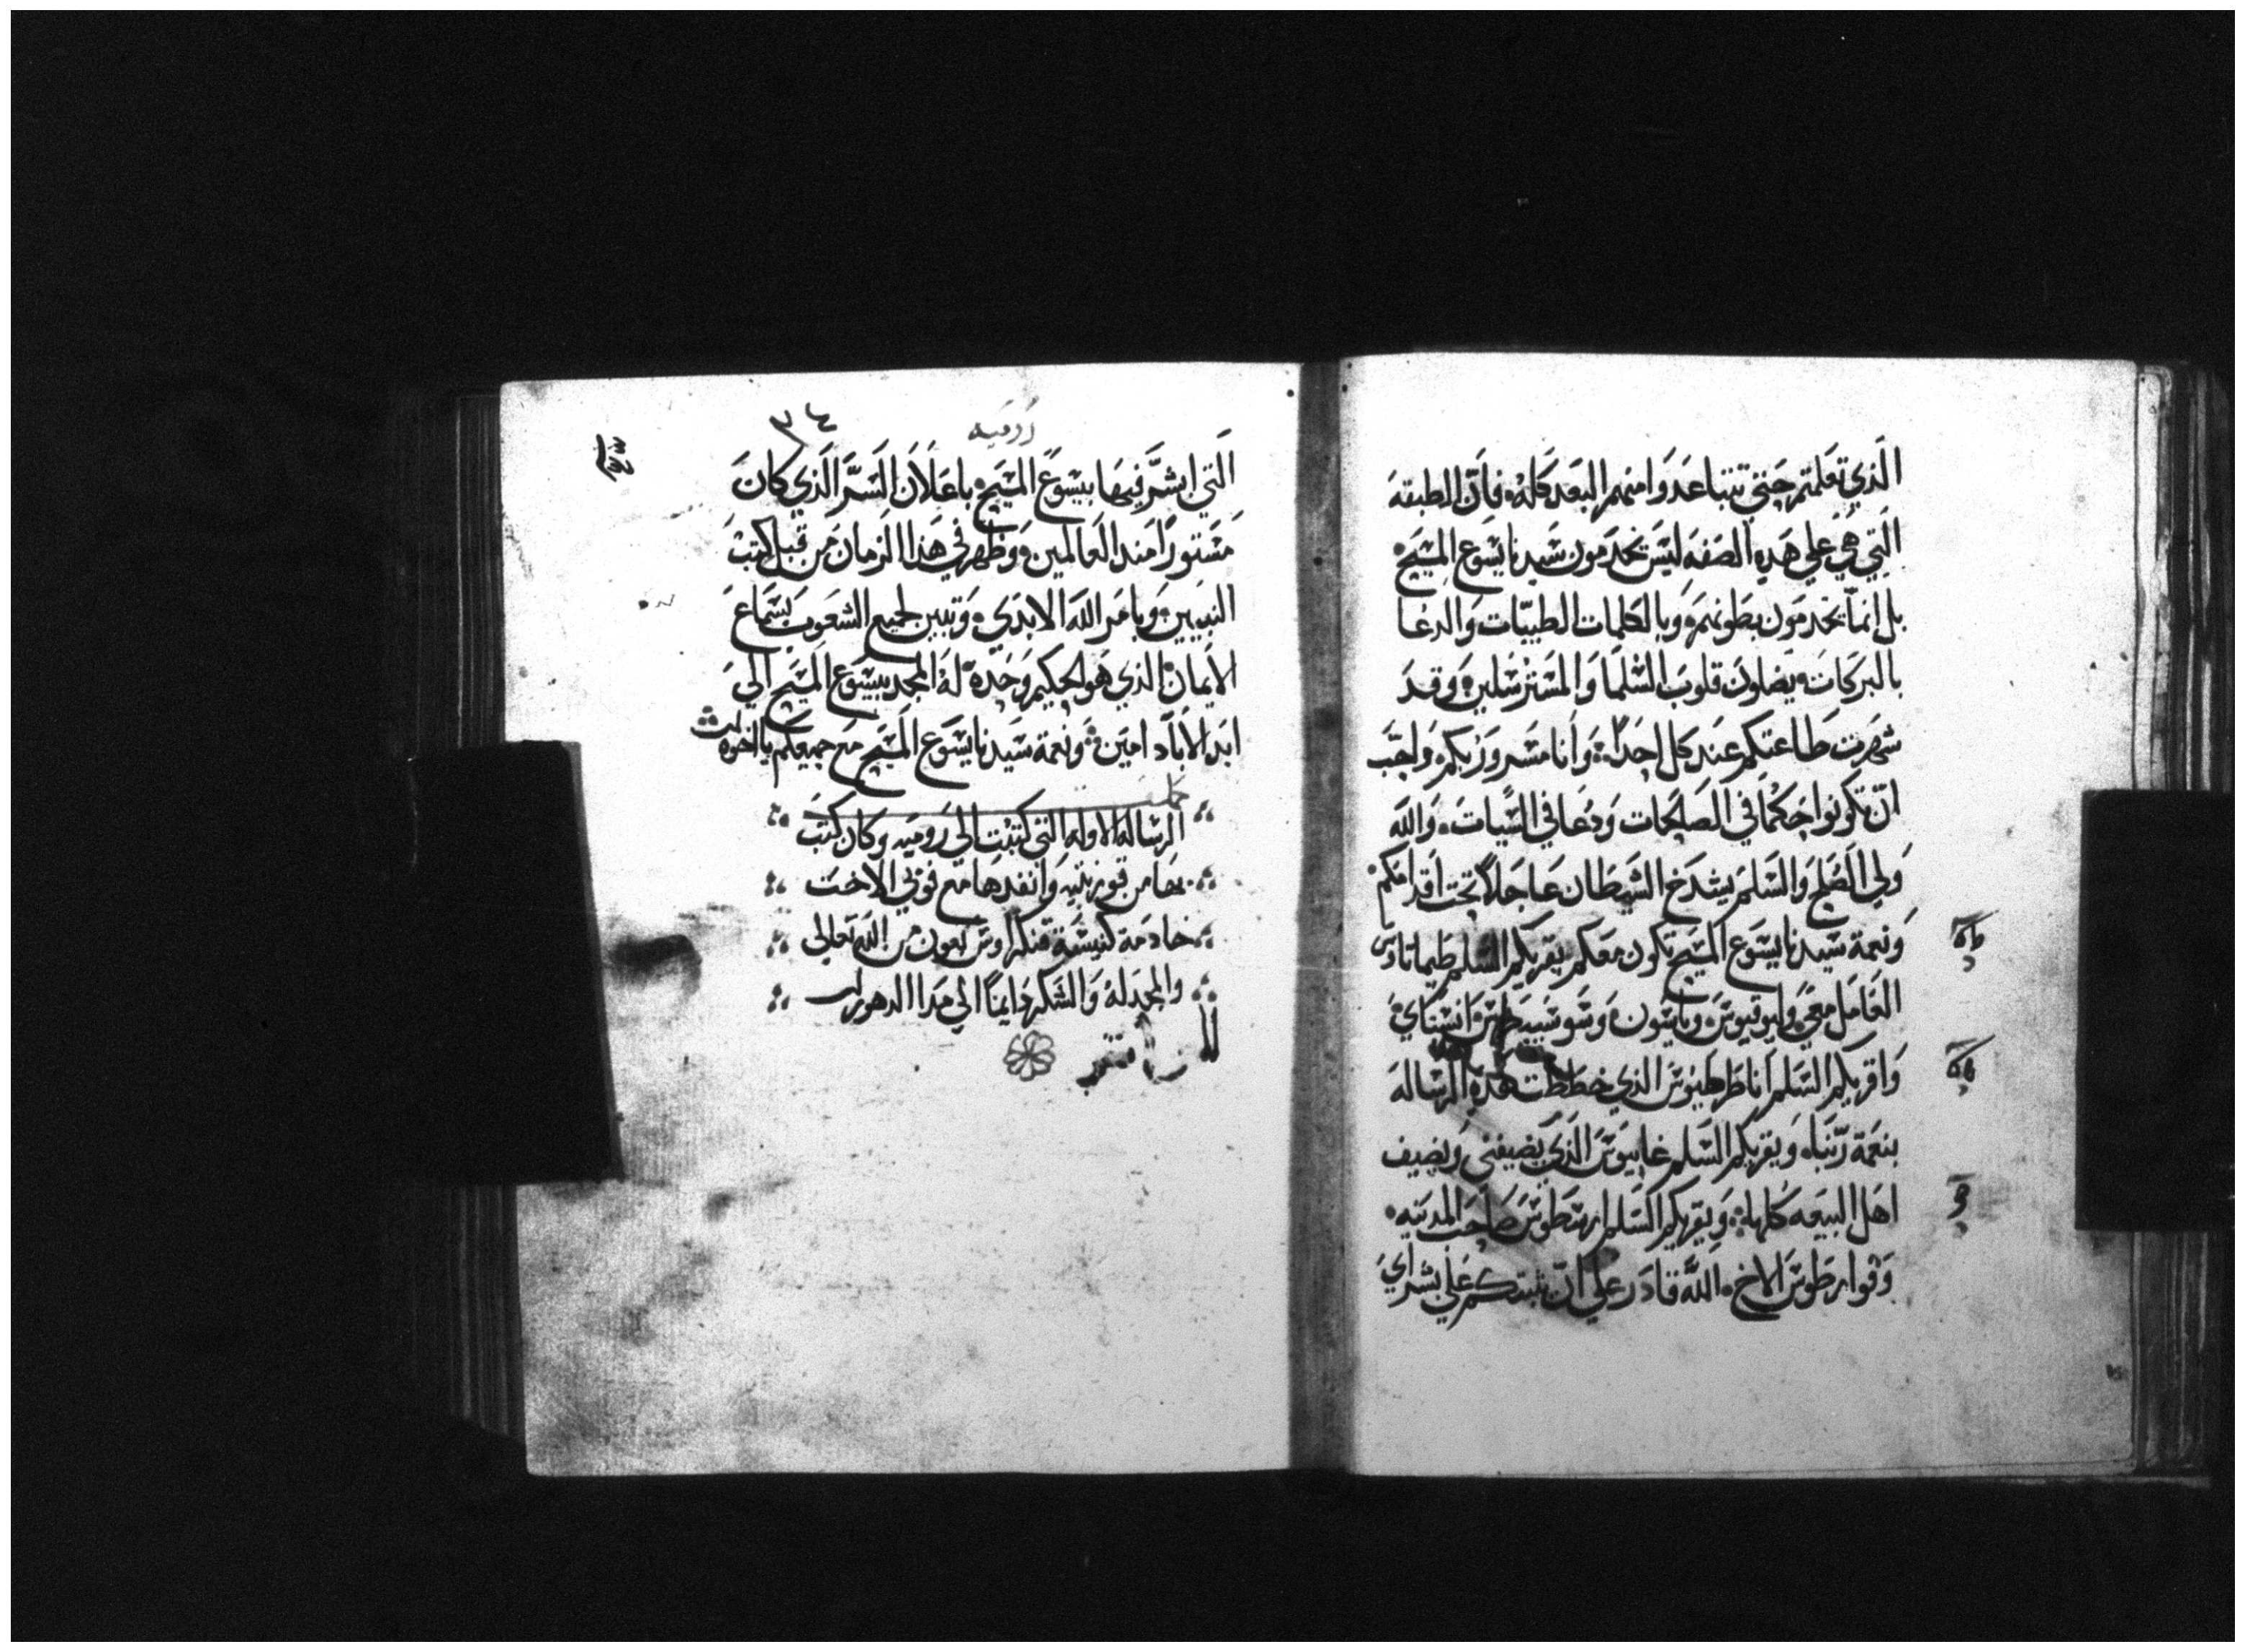 الذي تعلمتم حتي تتباعدوا منهم البعد كله فان الطبقه
التي هي علي هده الصفه ليس يخدمون سيدنا يسوع المسيح
بل انما يخدمون بطونهم وبالكلمات الطيبات والدعا
بالبركات يضلون قلوب السلما والمسترسلين وقد
شهرت طاعتكم عند كل احدا وانا مسرور بكم واجب
ان تكونوا حكما في الصالحات ودعا في السيات والله
ولي الصلح والسلم يشدخ الشيطان عاجلا تحت اقدامكم
ونعمة سيدنا يسوع المسيح تكون معكم يقريكم السلم طيماتاوس
العامل معي ولوقيوس وياسون وسوسيبيطرس انسباي
واقريكم السلم انا طرطيوس الذي خططت هذه الرساله
بنعمة ربنا ويقريكم السلم غاييوس الذي يضيفني ويضيف
اهل البيعه كلها ويقريكم السلم ارسطوس صاحب المدينه
وقوارطوس الاخ الله قادر علي ان يثبتكم علي بشراي
روميه
٣٤
التي ابشر فيها بيسوع المسيح باعلان السر الذي كان
مستورا مند العالمين وظهر في هذا الزمان من قبل كتب
النبيين وبامر الله الابدي وتبين لجميع الشعوب بسماع
الايمان الذي هو الحكيم وحده له المجد بيسوع المسيح الي
ابد الاباد امين ونعمة سيدنا يسوع المسيح مع جميعكم يا اخوه
الرساله الاوله التي كتبت الي روميه وكان كتب
بها من قورنتيه وانفدها مع فوبي الاخت
خادمة كنيسة قنكراوس بعون من الله تعالي
والمجد له والشكر دايما الي مدا الدهور